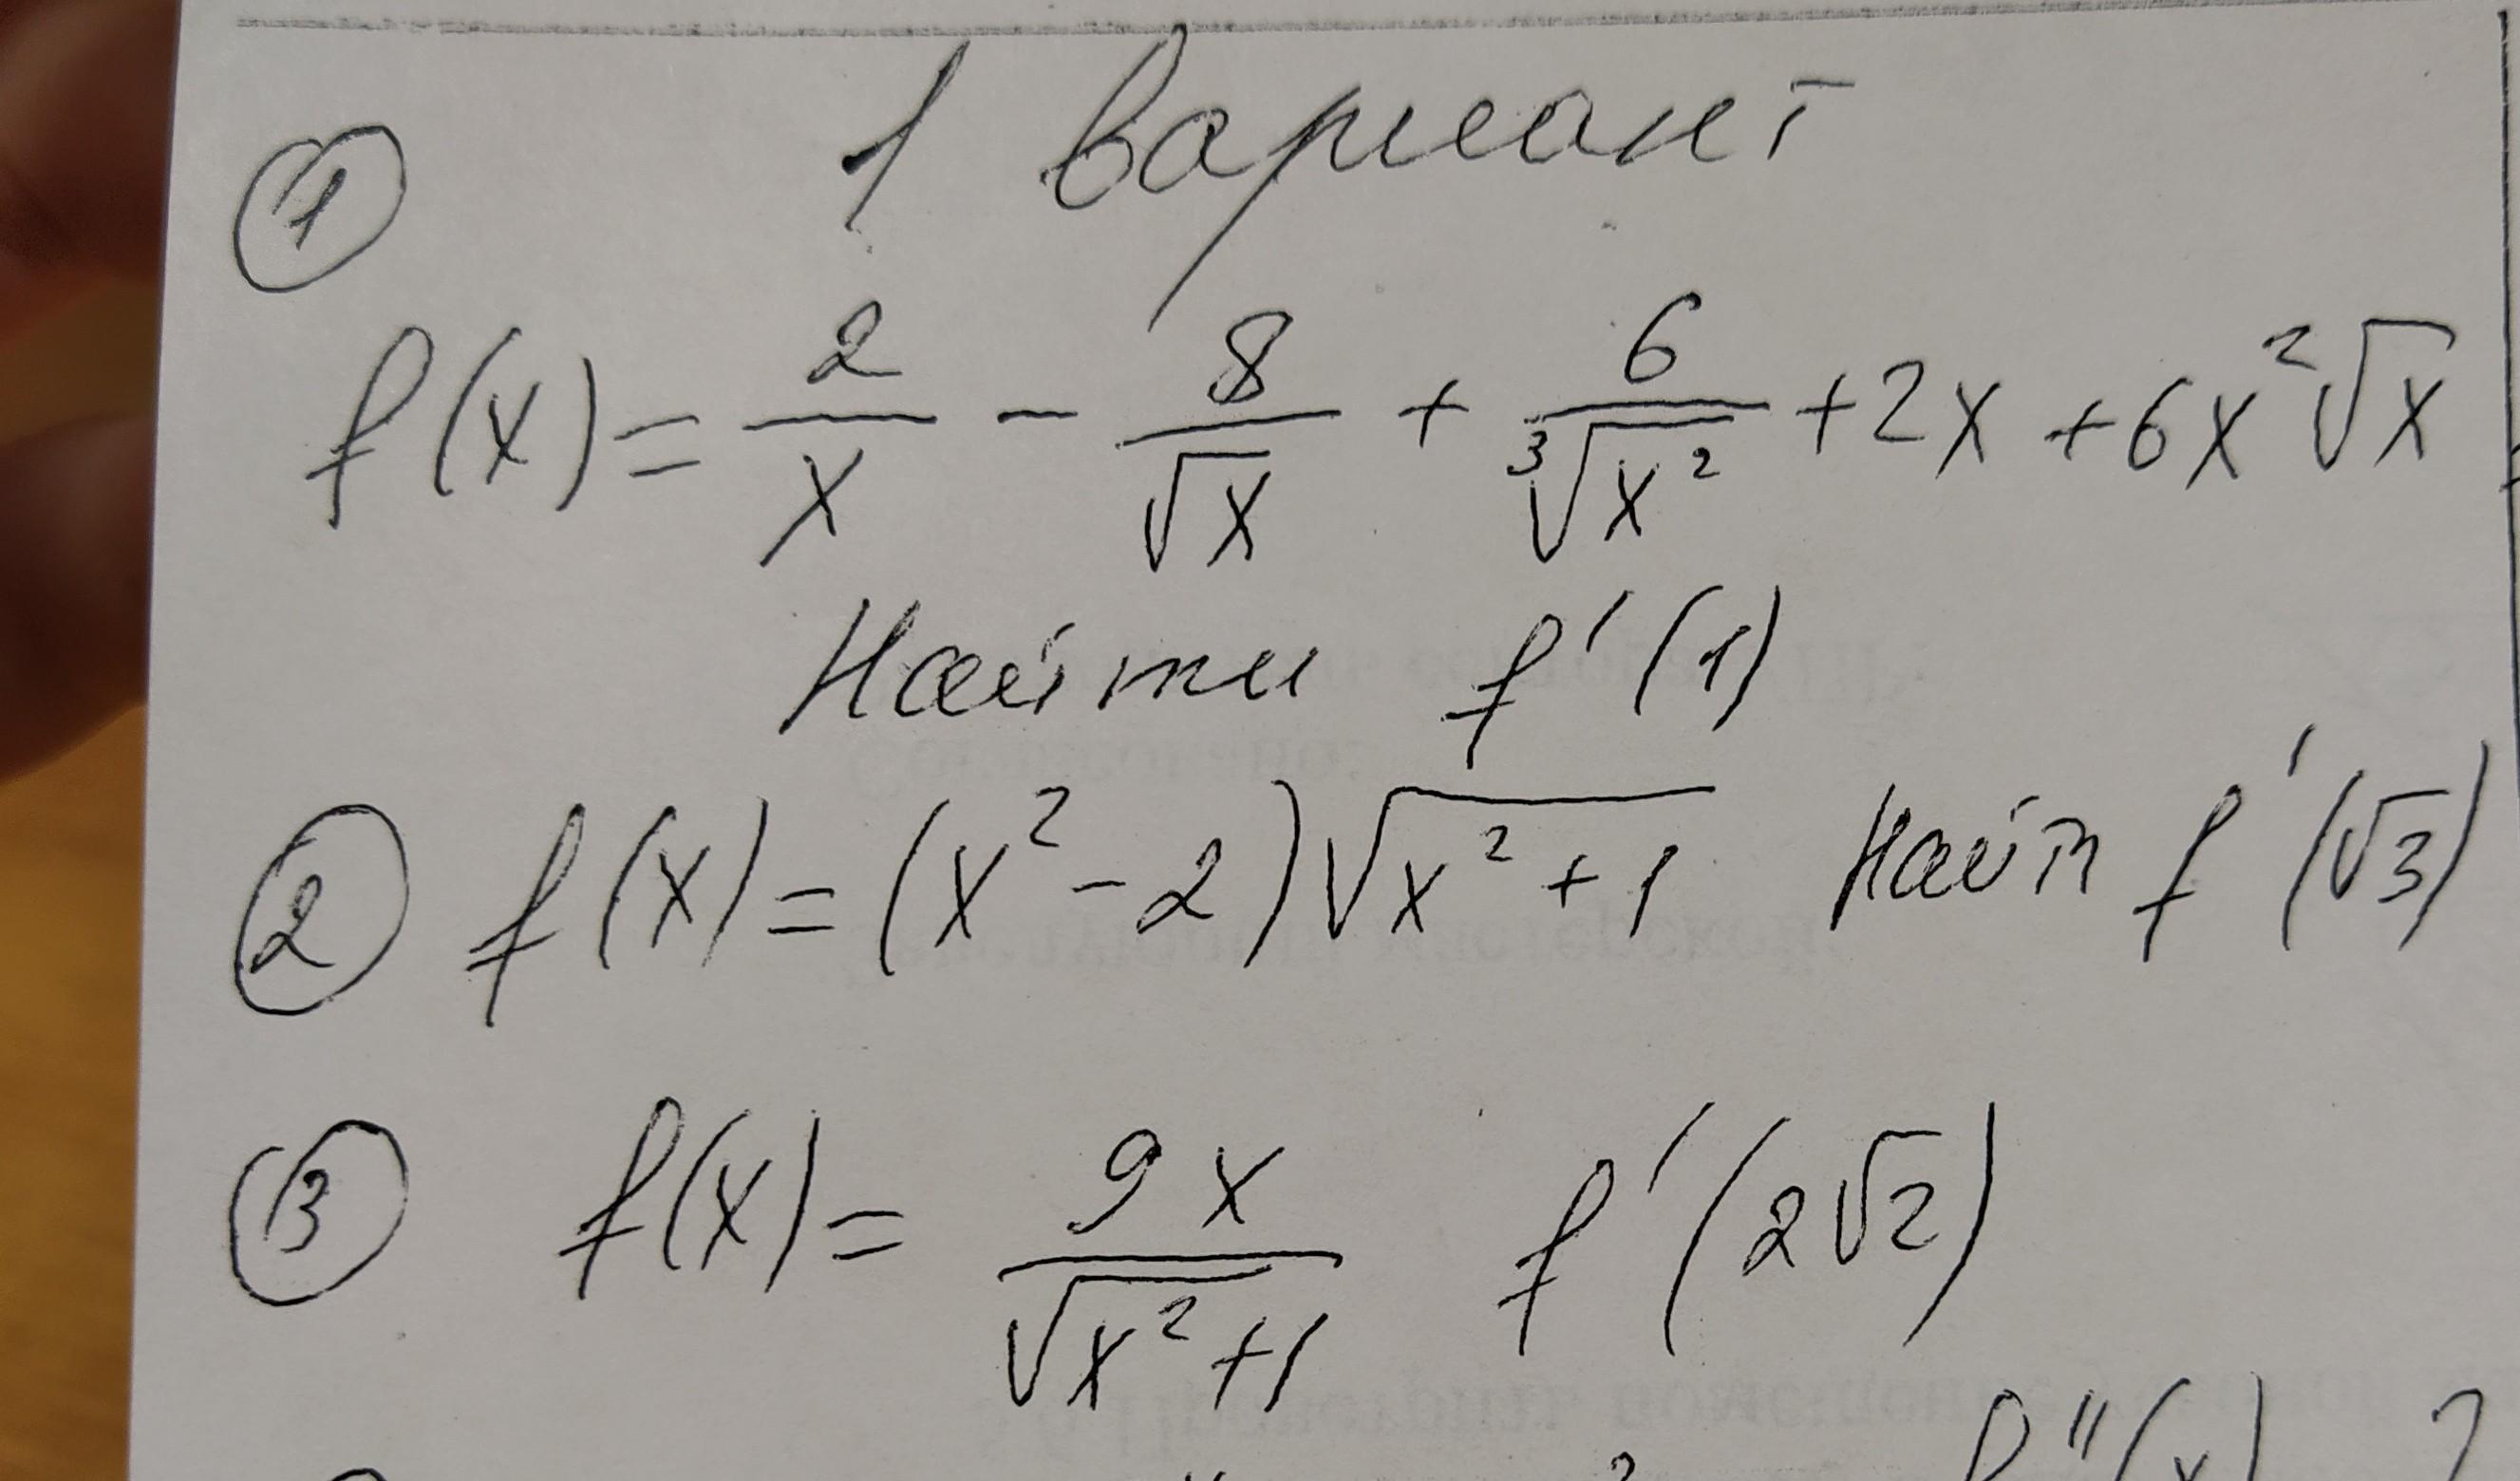 1 вариант
①
f(x) = 2/x - 8/√x + 6/∛(x²) + 2x + 6x²√x
Найти f'(1)
② f(x) = (x² - 2)√(x² + 1) Найти f'(√3)
③ f(x) = 9x/√(x² + 1) f'(2√2)